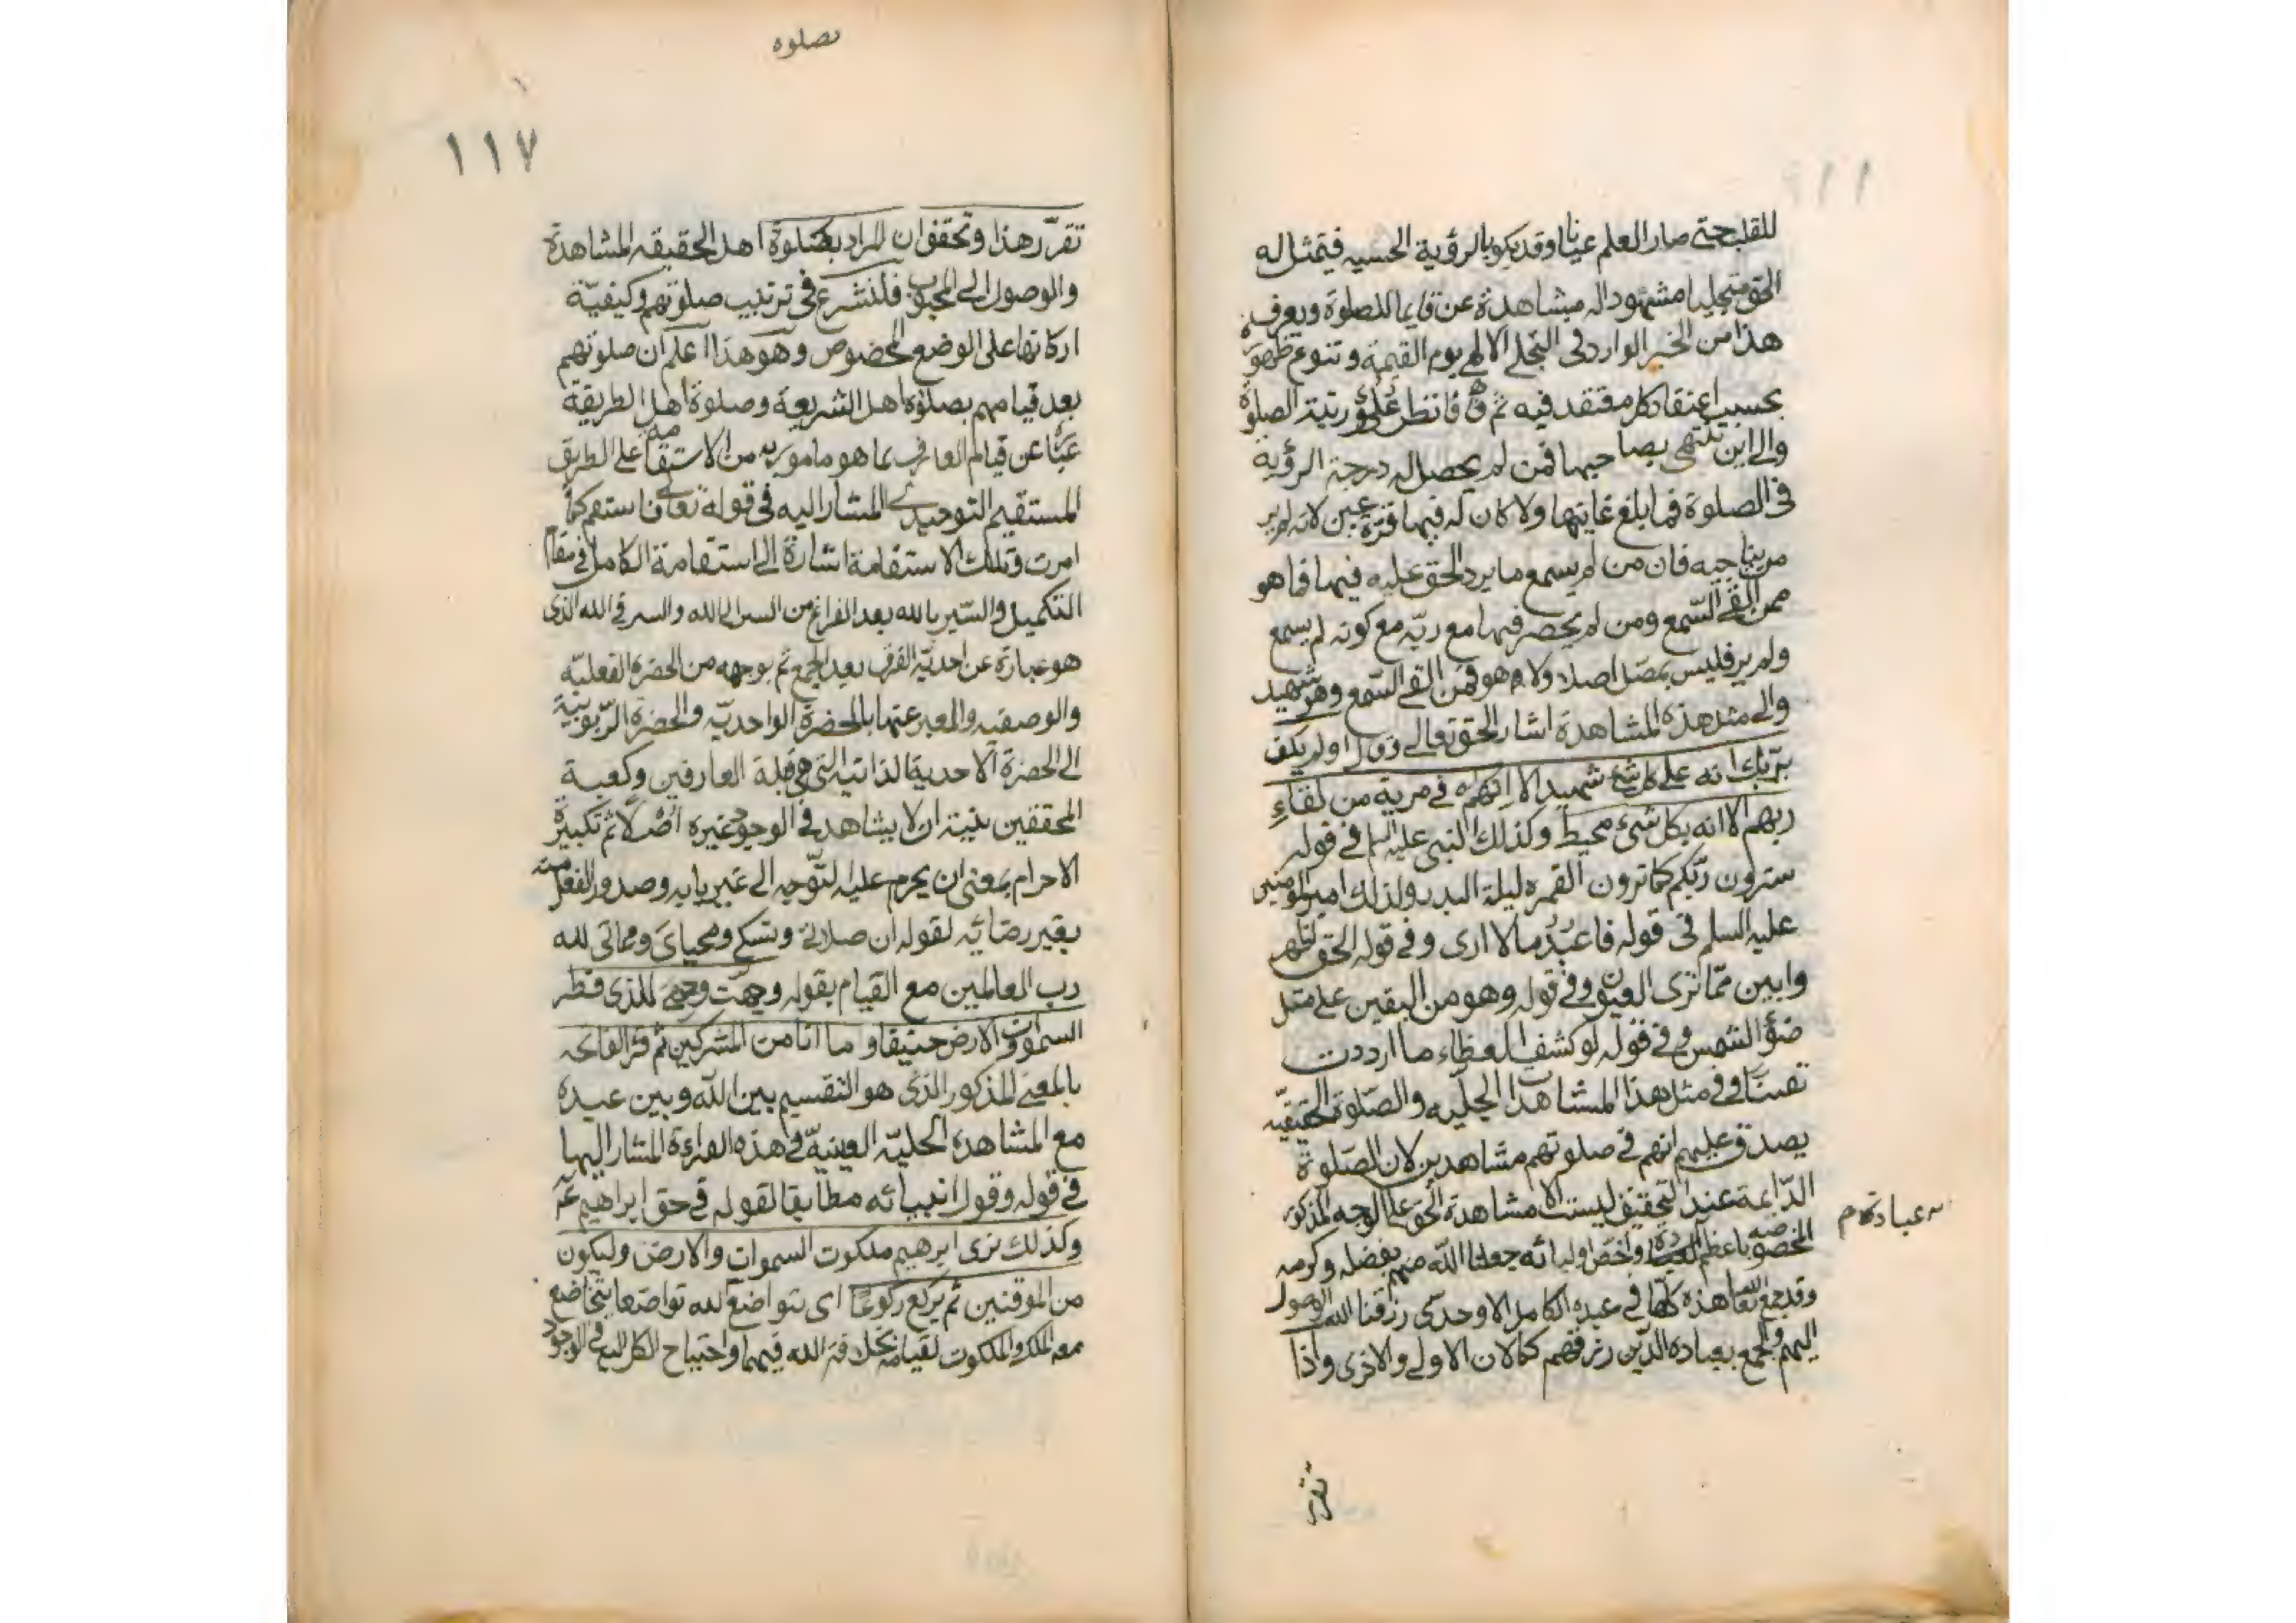 للقلب حتى صار العلم عيانا وقد يكون بالرؤية الحسيه فيتمثل له
الحق متجليا مشهودا له مشاهدة عن قايما للصلوة ويعرف
هذا من الخبر الوارد في التجلي الالهي يوم القيمة وتنوع ظهوره
بحسب اعتقاد كل معتقد فيه ثم ق فانظر علو رتبة الصلوة
والى اين تنتهى بصاحبها فمن لم يحصل له درجة الرؤية
في الصلوة فما بلغ غايتها ولا كان له فيها قرة عين لانه لم ير
من يناجيه فان من لم يسمع ما يرد الحق عليه فيها فما هو
ممن القى السمع ومن لم يحضر فيها مع ربه مع كونه لم يسمع
ولم ير فليس بمصل اصلا ولا هو فمن القى السمع وهو شهيد
والى مثل هذه المشاهدة اشار الحق تعالى في اولم يكف
بربك انه على كل شئ شهيد الا انهم في مرية من لقاء
ربهم الا انه بكل شئ محيط وكذلك النبى عليه السلم في قوله
سترون ربكم كما ترون القمر ليلة البدر ولذلك امير المومنين
عليه السلم في قوله فاعبد ما لا ارى وفي قوله الحق اظهر
وابين مما ترى العيون وفي قوله وهو من اليقين على مثل
ضوء الشمس وفي قوله لو كشف الغطاء ما ازددت
يقينا وفي مثل هذا المشاهدات الجليه والصلوة الحقيقيه
يصدق عليهم انهم في صلوتهم مشاهدين لان الصلوة
الدائمة عند التحقيق ليست الا مشاهدة الحق على الوجه المذكور
المخصوصه باعظم العباده واخص اوليائه جعلنا الله منهم بفضله وكرمه
وقد جمع الله تعا هذه كلها في عبده الكامل الاوحدى رزقنا الله الوصول
اليهم والجمع بعباده الذين رزقهم كمالات الاولى والاخرى واذا
عباده م
تقرر
بصلوه
١١٧
تقرر هذا وتحقق ان المراد بصلوة اهل الحقيقه المشاهدة
والوصول الى المحبوب فلنشرع في ترتيب صلوتهم وكيفية
اركانها على الوضع المخصوص وهو هذا اعلم ان صلوتهم
بعد قيامهم بصلوة اهل الشريعة وصلوة اهل الطريقة
عبارة عن قيام العارف بما هو مامور به من الاستقامه على الطريق
المستقيم التوحيدى المشار اليه في قوله تعالى فاستقم كما
امرت وتلك الاستقامة اشارة الى استقامة الكامل في مقام
التكميل والسير بالله بعد الفراغ من السر الى الله والسر في الله الذى
هو عبارة عن احدية الفرق بعد الجمع ثم بوجهه من الحضرة الفعليه
والوصفيه والمعبر عنها بالحضرة الواحديه والحضرة الربوبية
الى الحضرة الاحدية الذاتيه التى هى قبلة العارفين وكعبة
المحققين بنية ان لا يشاهد في الوجود غيره اصلا ثم تكبيرة
الاحرام بمعنى ان يحرم عليه التوجه الى غير بابه وصدور الفعل منه
بغير رضائه لقوله ان صلاتى ونسكى ومحياى ومماتى لله
رب العالمين مع القيام بقوله وجهت وجهى للذى فطر
السموات والارض حنيفا وما انا من المشركين ثم قرا الفاتحه
بالمعنى المذكور الذى هو التقسيم بين الله وبين عبده
مع المشاهدة الجليه العينية في هذه القراءة المشار اليها
في قوله وقول انبيائه مطابقا لقوله في حق ابراهيم ع
وكذلك نرى ابرهيم ملكوت السموات والارض وليكون
من الموقنين ثم يركع ركوعا اى يتواضع لله تواضعا يتخاضع
معه الملك والملكوت لقيامه بخلافة الله فيهما واحتياج الكل اليه في الوجود